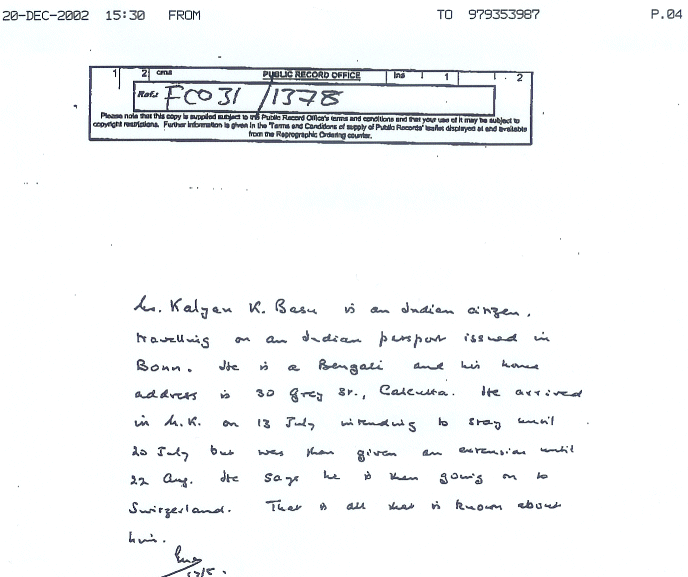 20-DEC-2002 15:30 FROM TO 979353987 P.04
1 2 cms PUBLIC RECORD OFFICE Ins 1 2
Ref.: FCO 31 /1378
Please note that this copy is supplied subject to the Public Record Office's terms and conditions and that your use of it may be subject to
copyright restrictions. Further information is given in the 'Terms and Conditions of supply of Public Records' leaflet displayed at and available
from the Reprographic Ordering counter.
Mr. Kalyan K. Basu is an Indian citizen,
travelling on an Indian passport issued in
Bonn. He is a Bengali and his home
address is 30 Grey St., Calcutta. He arrived
in U.K. on 13 July intending to stay until
20 July but was then given an extension until
22 Aug. He says he is then going on to
Switzerland. That is all that is known about
him.